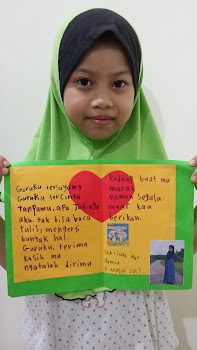 Guruku tersayang
Guruku tercinta
tanpamu, apa Jadinya
aku tak bisa baca
tulis, mengerti
banyak hal.
Guruku, terima
kasih mu
nyatalah dirimu
Kadang buat mu
marah
Namun Segala
maaf kau
berikan.